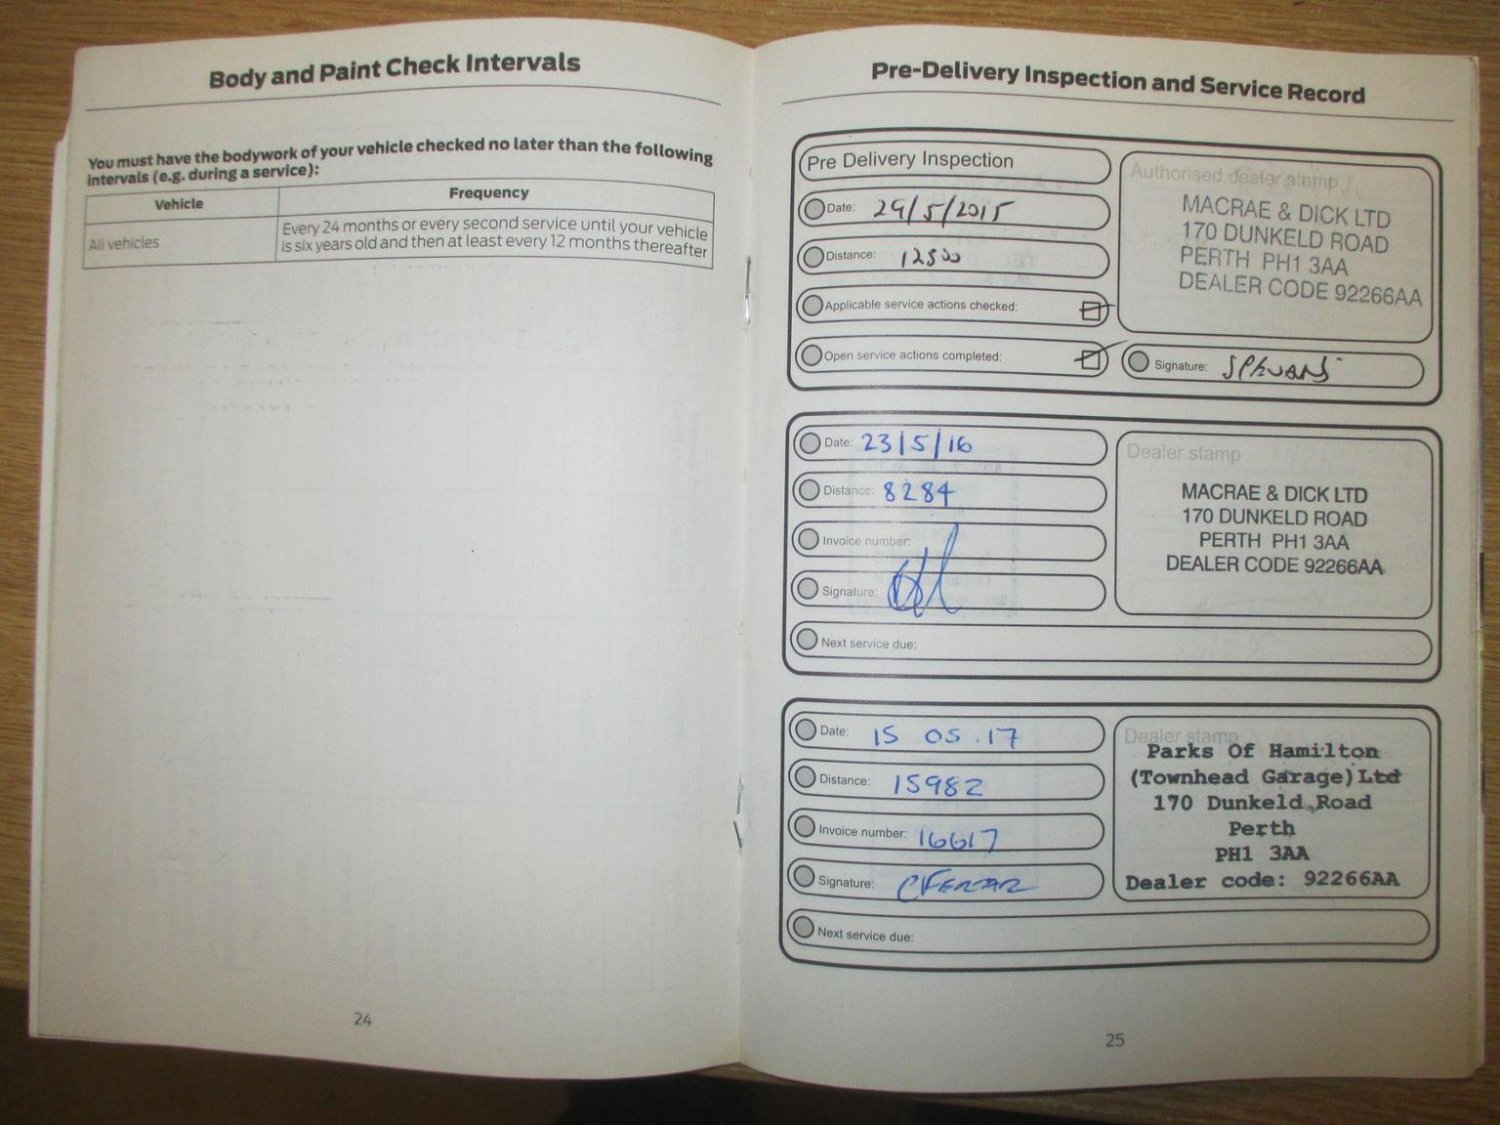 Body and Paint Check Intervals
You must have the bodywork of your vehicle checked no later than the following
intervals (e.g. during a service):
Vehicle Frequency
All vehicles Every 24 months or every second service until your vehicle
is six years old and then at least every 12 months thereafter
24
Pre-Delivery Inspection and Service Record
Pre Delivery Inspection
Date: 29/5/2015
Distance:
Applicable service actions checked:
Open service actions completed:
Authorised dealer stamp
MACRAE & DICK LTD
170 DUNKELD ROAD
PERTH PH1 3AA
DEALER CODE 92266AA
Signature:
Date: 23/5/16
Distance: 8284
Invoice number:
Signature:
Next service due:
Dealer stamp
MACRAE & DICK LTD
170 DUNKELD ROAD
PERTH PH1 3AA
DEALER CODE 92266AA
Date: 15 05.17
Distance: 15982
Invoice number: 16617
Signature:
Next service due:
Dealer stamp
Parks Of Hamilton
(Townhead Garage) Ltd
170 Dunkeld Road
Perth
PH1 3AA
Dealer code: 92266AA
25